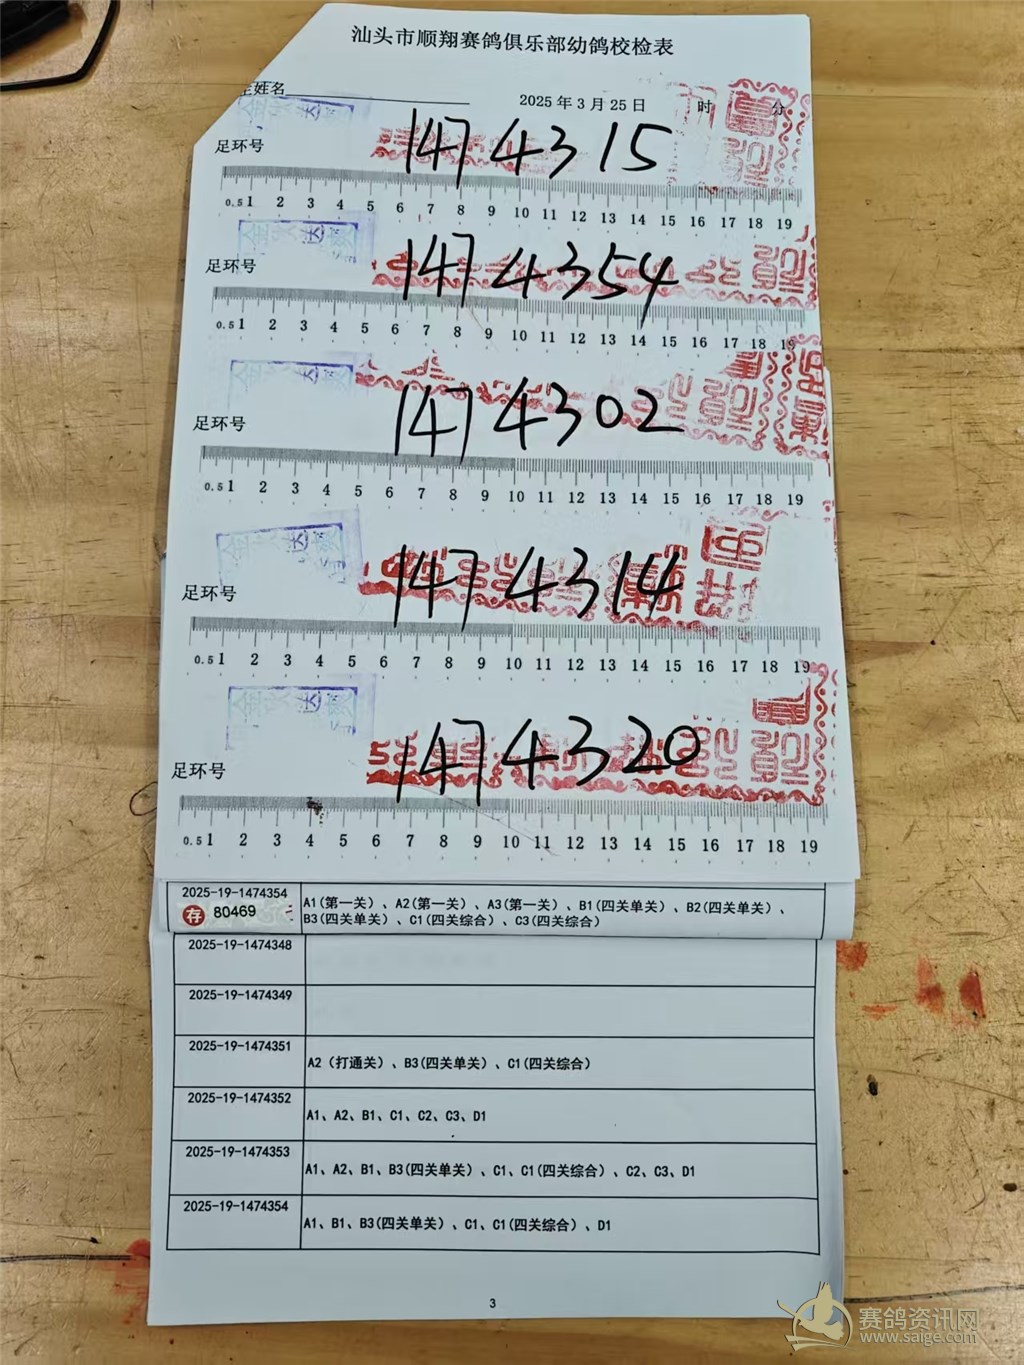 汕头市顺翔赛鸽俱乐部幼鸽校检表
主姓名 2025年3月25日 时 分
足环号 1474315
0.5 1 2 3 4 5 6 7 8 9 10 11 12 13 14 15 16 17 18 19
足环号 1474354
0.5 1 2 3 4 5 6 7 8 9 10 11 12 13 14 15 16 17 18 19
足环号 1474302
0.5 1 2 3 4 5 6 7 8 9 10 11 12 13 14 15 16 17 18 19
足环号 1474314
0.5 1 2 3 4 5 6 7 8 9 10 11 12 13 14 15 16 17 18 19
足环号 1474320
0.5 1 2 3 4 5 6 7 8 9 10 11 12 13 14 15 16 17 18 19
2025-19-1474354
存 80469
A1(第一关)、A2(第一关)、A3(第一关)、B1(四关单关)、B2(四关单关)、
B3(四关单关)、C1(四关综合)、C3(四关综合)
2025-19-1474348
2025-19-1474349
2025-19-1474351
A2(打通关)、B3(四关单关)、C1(四关综合)
2025-19-1474352
A1、A2、B1、C1、C2、C3、D1
2025-19-1474353
A1、A2、B1、B3(四关单关)、C1、C1(四关综合)、C2、C3、D1
2025-19-1474354
A1、B1、B3(四关单关)、C1、C1(四关综合)、D1
3
赛鸽资讯网
www.saige.com